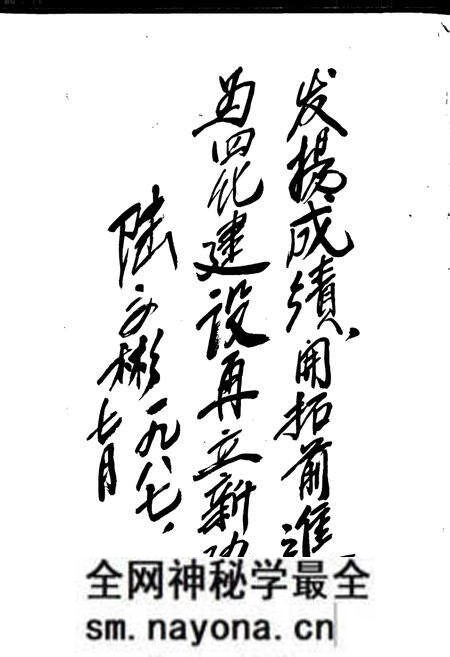 发揚成績，開拓前進
为四化建设再立新功
陆文彬
一九八七.
七月
全网神秘学最全
sm.nayona.cn